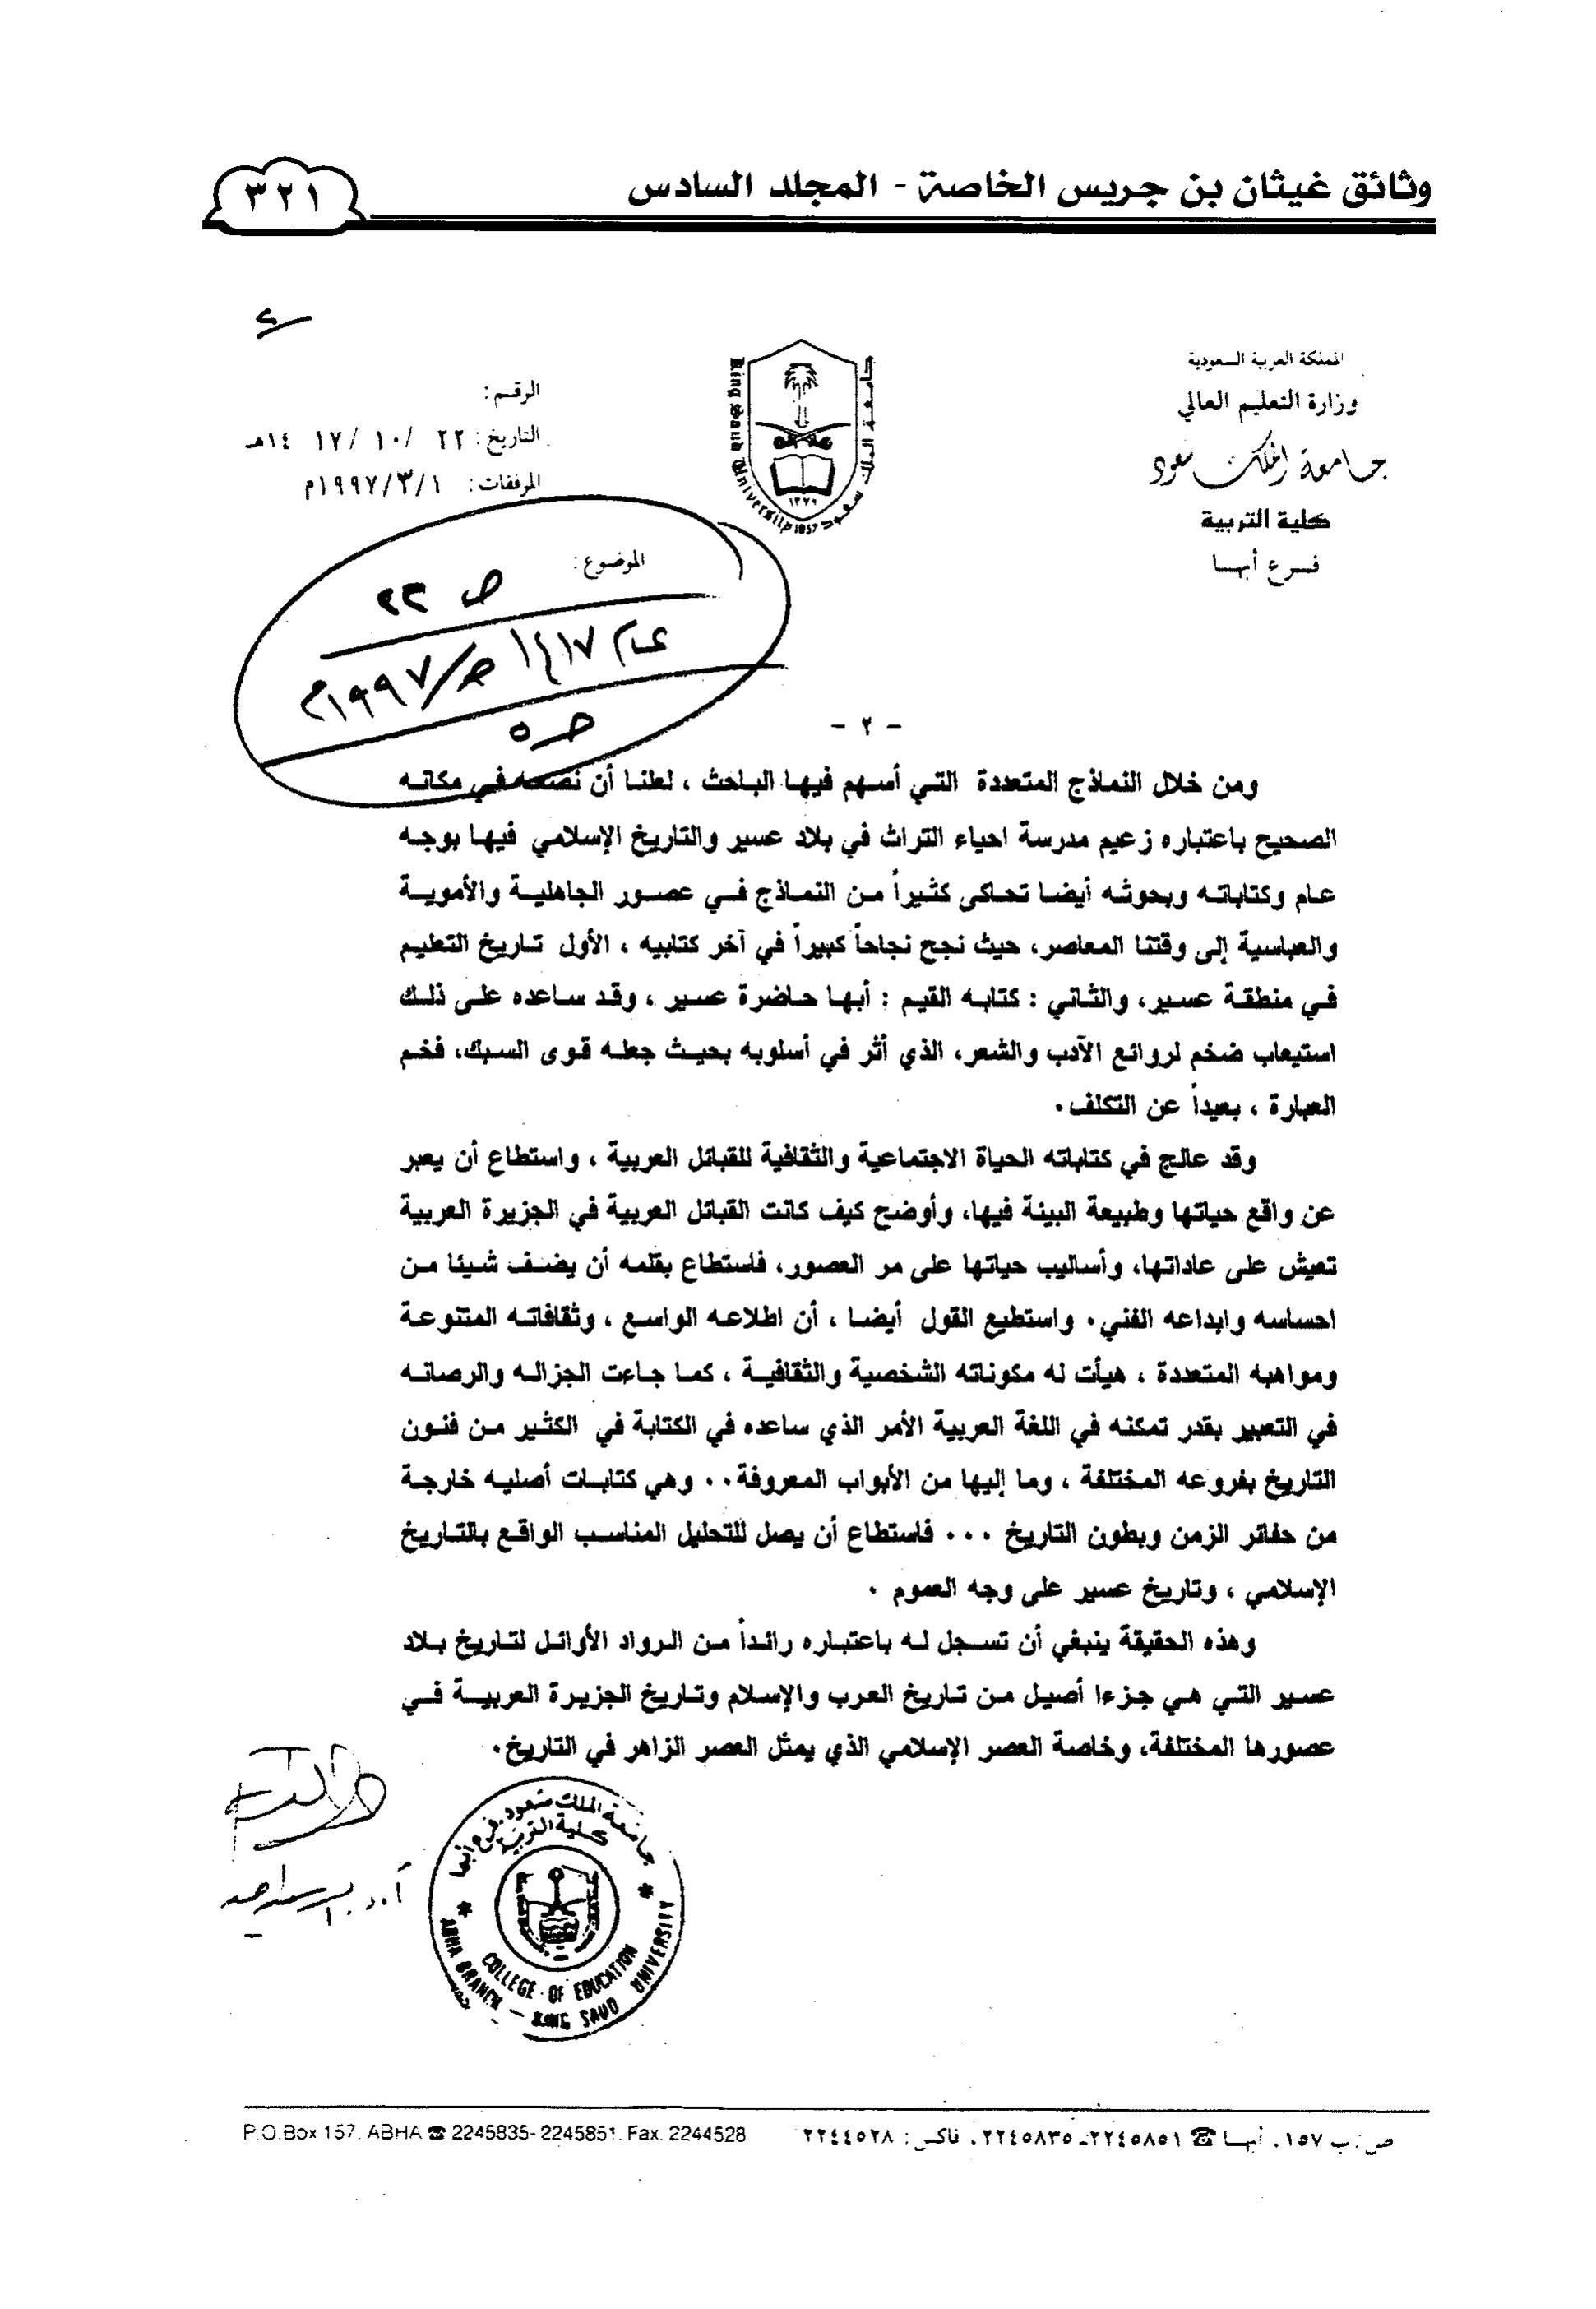 وثائق غيثان بن جريس الخاصة - المجلد السادس
٣٢١
المملكة العربية السعودية
وزارة التعليم العالي
جامعة الملك سعود
كلية التربية
فرع أبها
جامعة الملك سعود
King Saud University 1957
١٣٧٧
الرقم:
التاريخ: ٢٢ /١٠ /١٧ ١٤هـ
المرفقات: ١٩٩٧/٣/١م
الموضوع:
ص
عام ١٤١٧هـ/١٩٩٧م
- ٢ -
ومن خلال النماذج المتعددة التي أسهم فيها الباحث ، لعلنا أن نضعه في مكانه
الصحيح باعتباره زعيم مدرسة احياء التراث في بلاد عسير والتاريخ الإسلامي فيها بوجه
عام وكتاباته وبحوثه أيضا تحاكى كثيراً من النماذج في عصور الجاهلية والأموية
والعباسية إلى وقتنا المعاصر، حيث نجح نجاحاً كبيراً في آخر كتابيه ، الأول تاريخ التعليم
في منطقة عسير، والثاني : كتابه القيم : أبها حاضرة عسير ، وقد ساعده على ذلك
استيعاب ضخم لروائع الأدب والشعر، الذي أثر في أسلوبه بحيث جعله قوى السبك، فخم
العبارة ، بعيداً عن التكلف.
وقد عالج في كتاباته الحياة الاجتماعية والثقافية للقبائل العربية ، واستطاع أن يعبر
عن واقع حياتها وطبيعة البيئة فيها، وأوضح كيف كانت القبائل العربية في الجزيرة العربية
تعيش على عاداتها، وأساليب حياتها على مر العصور، فاستطاع بقلمه أن يضف شيئا من
احساسه وابداعه الفني. واستطيع القول أيضا ، أن اطلاعه الواسع ، وثقافاته المتنوعة
ومواهبه المتعددة ، هيأت له مكوناته الشخصية والثقافية ، كما جاءت الجزاله والرصانه
في التعبير بقدر تمكنه في اللغة العربية الأمر الذي ساعده في الكتابة في الكثير من فنون
التاريخ بفروعه المختلفة ، وما إليها من الأبواب المعروفة.. وهي كتابات أصليه خارجة
من حفائر الزمن وبطون التاريخ ... فاستطاع أن يصل للتحليل المناسب الواقع بالتاريخ
الإسلامي ، وتاريخ عسير على وجه العموم .
وهذه الحقيقة ينبغي أن تسجل له باعتباره رائداً من الرواد الأوائل لتاريخ بلاد
عسير التي هي جزءا أصيل من تاريخ العرب والإسلام وتاريخ الجزيرة العربية في
عصورها المختلفة، وخاصة العصر الإسلامي الذي يمثل العصر الزاهر في التاريخ.
جامعة الملك سعود. فرع أبها
كلية التربية
COLLEGE OF EDUCATION
ABHA BRANCH - KING SAUD UNIVERSITY
ص.ب ١٥٧. أبها ☎ ٢٢٤٥٨٥١-٢٢٤٥٨٣٥. فاكس: ٢٢٤٤٥٢٨
P.O.Box 157. ABHA ☎ 2245835-2245851. Fax. 2244528